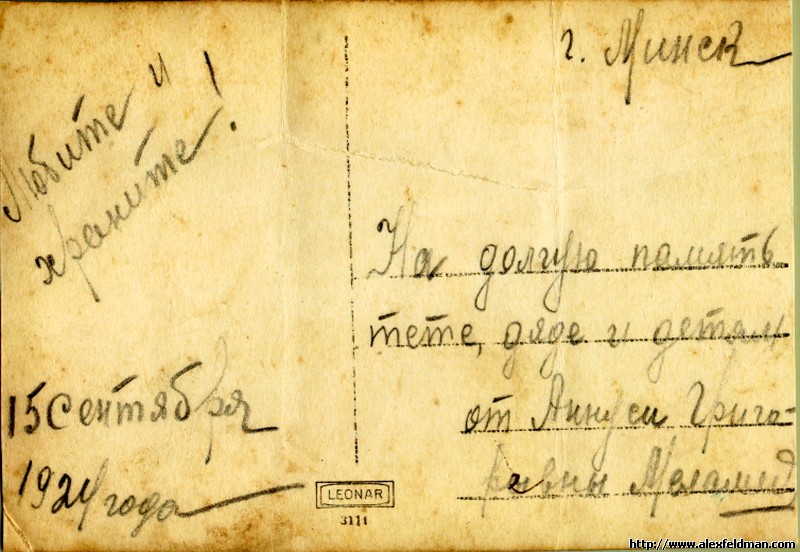 Любите и
храните!
15 Сентября
1924 года
г. Минск
На долгую память
тете, дяде и детям
от Аннуси Грига-
рьевны Меламед
LEONAR
3111
http://www.alexfeldman.com